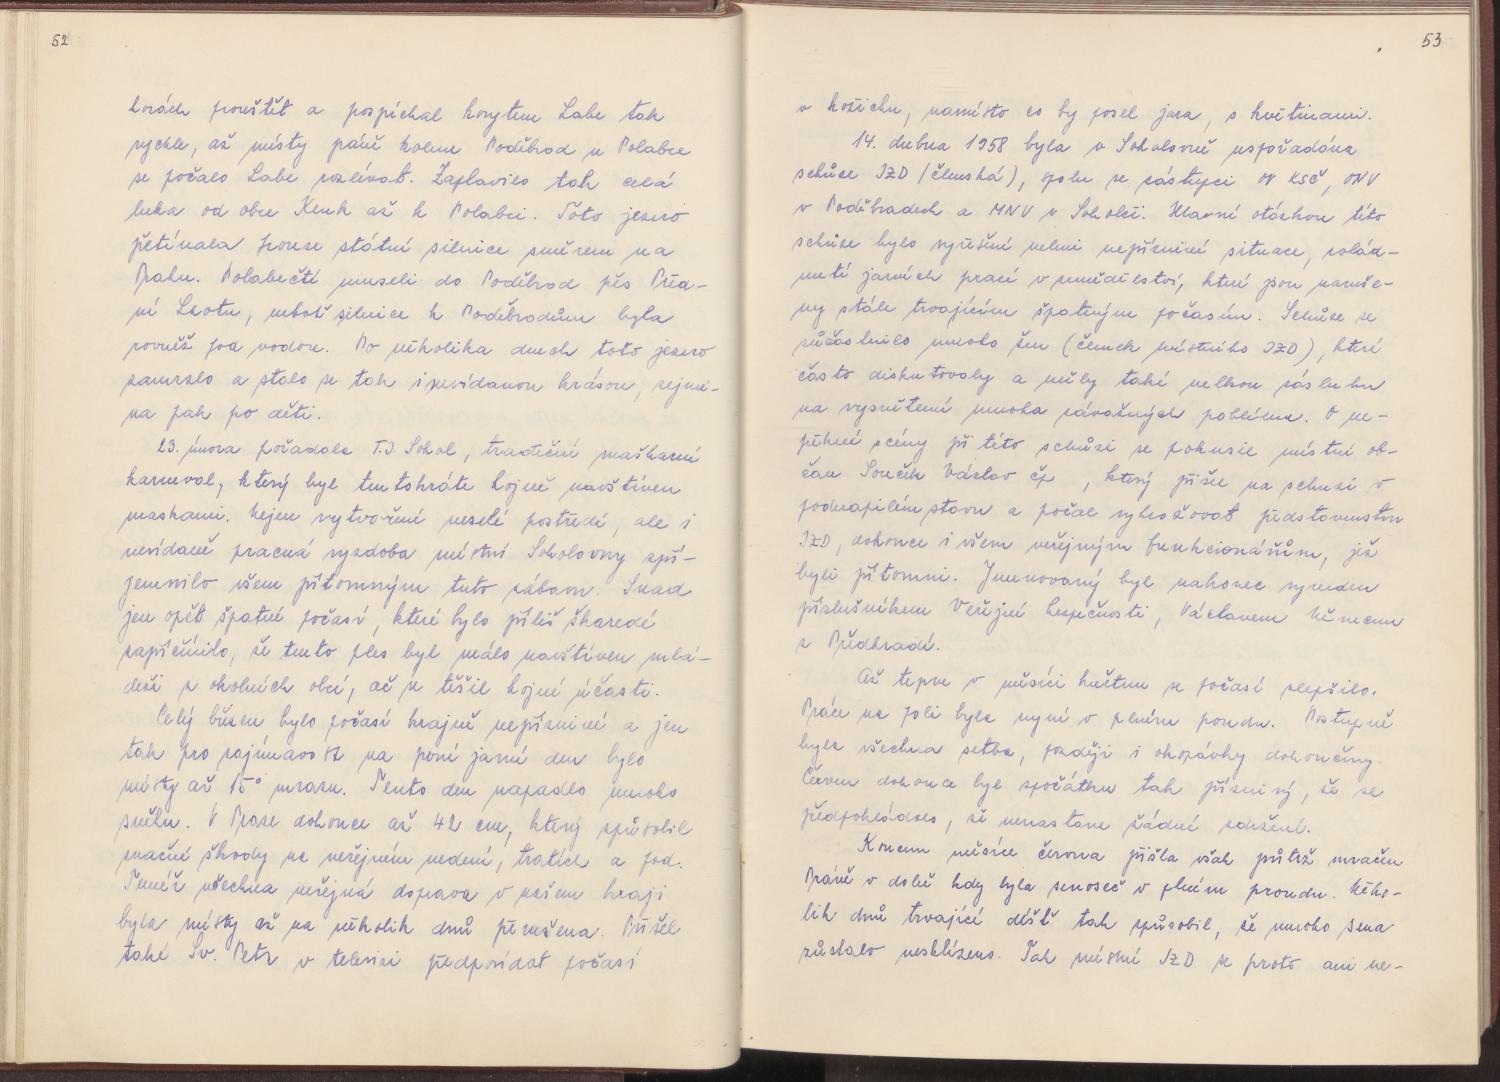 52
horách pouštět a pospíchal korytem Labe tak
rychle, až místy páně kolem Poděbrad u Polabce
se počalo Labe rozlévat. Zaplavilo tak celá
luka od obce Kluk až k Polabci. Toto jezero
přetínala pouze státní silnice směrem na
Prahu. Polabečtí museli do Poděbrad přes Před-
ní Lhotu, neboť silnice k Poděbradům byla
rovněž pod vodou. Po několika dnech toto jezero
zamrzlo a stalo se tak i nevídanou krásou, zejmé-
na pak po děti.
23. února pořádala T.J. Sokol, tradiční maškarní
karneval, který byl tentokráte hojně navštíven
maskami. Nejen vytvoření veselé postředí, ale i
nevídaně pracná výzdoba místní Sokolovny zpří-
jemnilo všem přítomným tuto zábavu. Snad
jen opět špatné počasí, které bylo příliš škaredé
zapříčinilo, že tento ples byl málo navštíven mlá-
deží z okolních obcí, ač se těšil hojné účasti.
Celý březen bylo počasí krajně nepříznivé a jen
tak pro zajímavost na první jarní den bylo
místy až 15° mrazu. Tento den napadlo mnoho
sněhu. V Praze dokonce až 42 cm, který způsobil
značné škody na veřejném vedení, tratích a pod.
Téměř všechna veřejná doprava v našem kraji
byla místy až na několik dnů přerušena. Přišel
také Sv. Petr v televizi předpovídat počasí
53
v kožichu, namísto co by posel jara, s květinami.
14. dubna 1958 byla v Sokolovně uspořádána
schůze JZD /členská), spolu se zástupci OV KSČ, ONV
v Poděbradech a MNV v Sokolči. Hlavní otázkou této
schůze bylo vyřešení velmi nepříznivé situace, zvlád-
nutí jarních prací v zemědělství, které jsou naruše-
ny stále trvajícím špatným počasím. Schůze se
zúčastnilo mnoho žen (členek místního JZD), které
často diskutovaly a měly také velkou zásluhu
na vysvětlení mnoha závažných poblémů. O ne-
pěkné scény při této schůzi se pokusil místní ob-
čan Souček Václav čp , který přišel na schůzi v
podnapilém stavu a počal vyhrožovat představenstvu
JZD, dokonce i všem veřejným funkcionářům, jež
byli přítomni. Jmenovaný byl nakonec vyveden
příslušníkem Veřejné bezpečnosti, Václavem Němcem
z Předhradí.
Až teprve v měsíci květnu se počasí zlepšilo.
Práce na poli byla nyní v plném proudu. Postupně
byla všechna setba, později i okopávky dokončeny.
Červen dokonce byl zpočátku tak příznivý, že se
předpokládalo, že nenastane žádné zdržení.
Koncem měsíce června přišla však průtrž mračen
Právě v době kdy byla senoseč v plném proudu. Něko-
lik dnů trvající déšť tak způsobil, že mnoho sena
zůstalo nesklizeno. Tak místní JZD se proto ani ne-